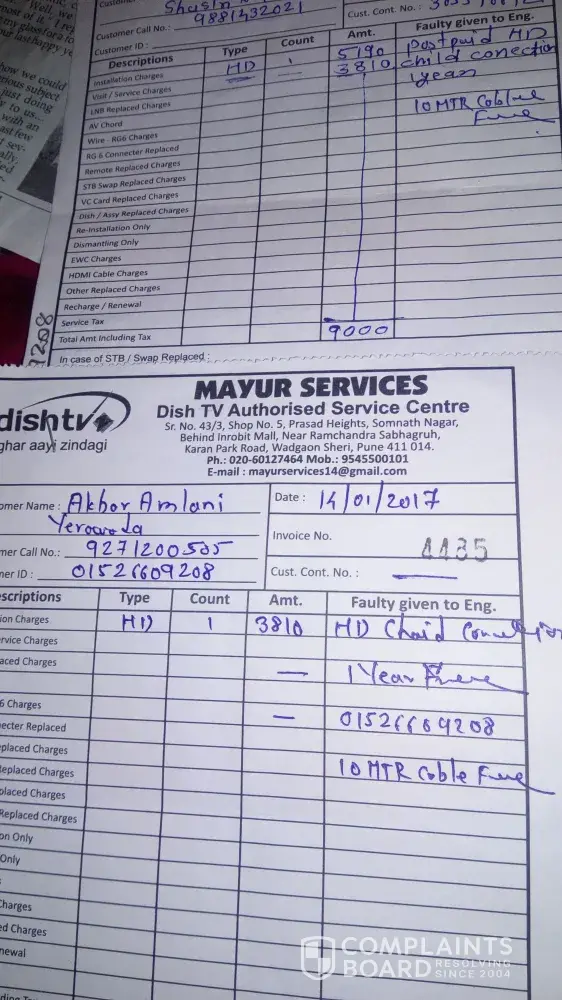 Customer
Shasin
Cust. Cont. No. :
Customer Call No.: 9881432021
Customer ID :
Descriptions Type Count Amt. Faulty given to Eng.
Installation Charges HD 1 5190 postpuid HD
Visit / Service Charges 3810 child conection
LNB Replaced Charges 1year
AV Chord 10 MTR Coble
Wire - RG6 Charges Free
RG 6 Connecter Replaced
Remote Replaced Charges
STB Swap Replaced Charges
VC Card Replaced Charges
Dish / Assy Replaced Charges
Re-Installation Only
Dismantling Only
EWC Charges
HDMI Cable Charges
Other Replaced Charges
Recharge / Renewal
Service Tax
Total Amt Including Tax 9000
In case of STB / Swap Replaced :
9208
dishtv
ghar aayi zindagi
MAYUR SERVICES
Dish TV Authorised Service Centre
Sr. No. 43/3, Shop No. 5, Prasad Heights, Somnath Nagar,
Behind Inrobit Mall, Near Ramchandra Sabhagruh,
Karan Park Road, Wadgaon Sheri, Pune 411 014.
Ph.: 020-60127464 Mob.: 9545500101
E-mail : mayurservices14@gmail.com
omer Name : Akbar Amlani
Yerowada
Date : 14/01/2017
Invoice No. 4435
mer Call No.: 9271200505
mer ID : 01526609208
Cust. Cont. No. : —
escriptions Type Count Amt. Faulty given to Eng.
ion Charges HD 1 3810 HD Chaid
rvice Charges
aced Charges — 1 Year Free
6 Charges — 01526609208
ecter Replaced
eplaced Charges 10 MTR Coble Free
Replaced Charges
placed Charges
Replaced Charges
on Only
Only
Charges
ed Charges
newal
COMPLAINTS
BOARD RESOLVING
SINCE 2004